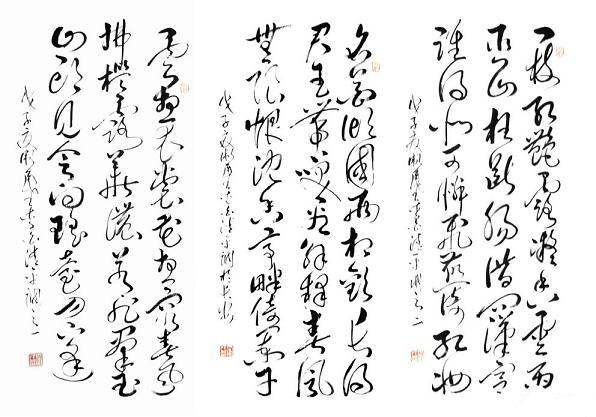 云想衣裳花想容春风
拂槛露华浓若非群玉
山头见会向瑶台月下逢
戊子 李白清平调之一
名花倾国两相欢长得
君王带笑看解释春风
无限恨沉香亭畔倚阑干
戊子 李白清平调
一枝红艳露凝香云雨
巫山枉断肠借问汉宫
谁得似可怜飞燕倚 妆
戊子 李白清平调之二